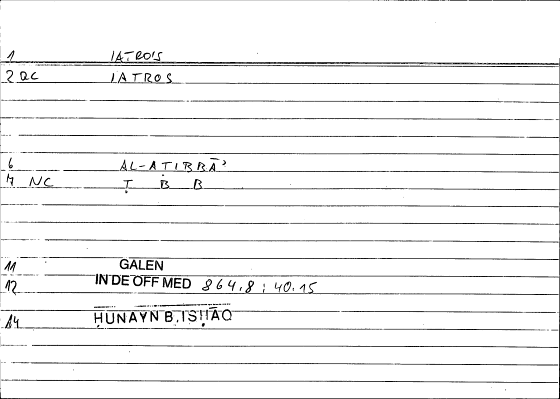 1 IATROIS
2 QC IATROS
6 AL-ATIBBĀʾ
7 NC Ṭ B B
11 GALEN
12 IN DE OFF MED 864,8 : 40.15
14 ḤUNAYN B. ISḤĀQ